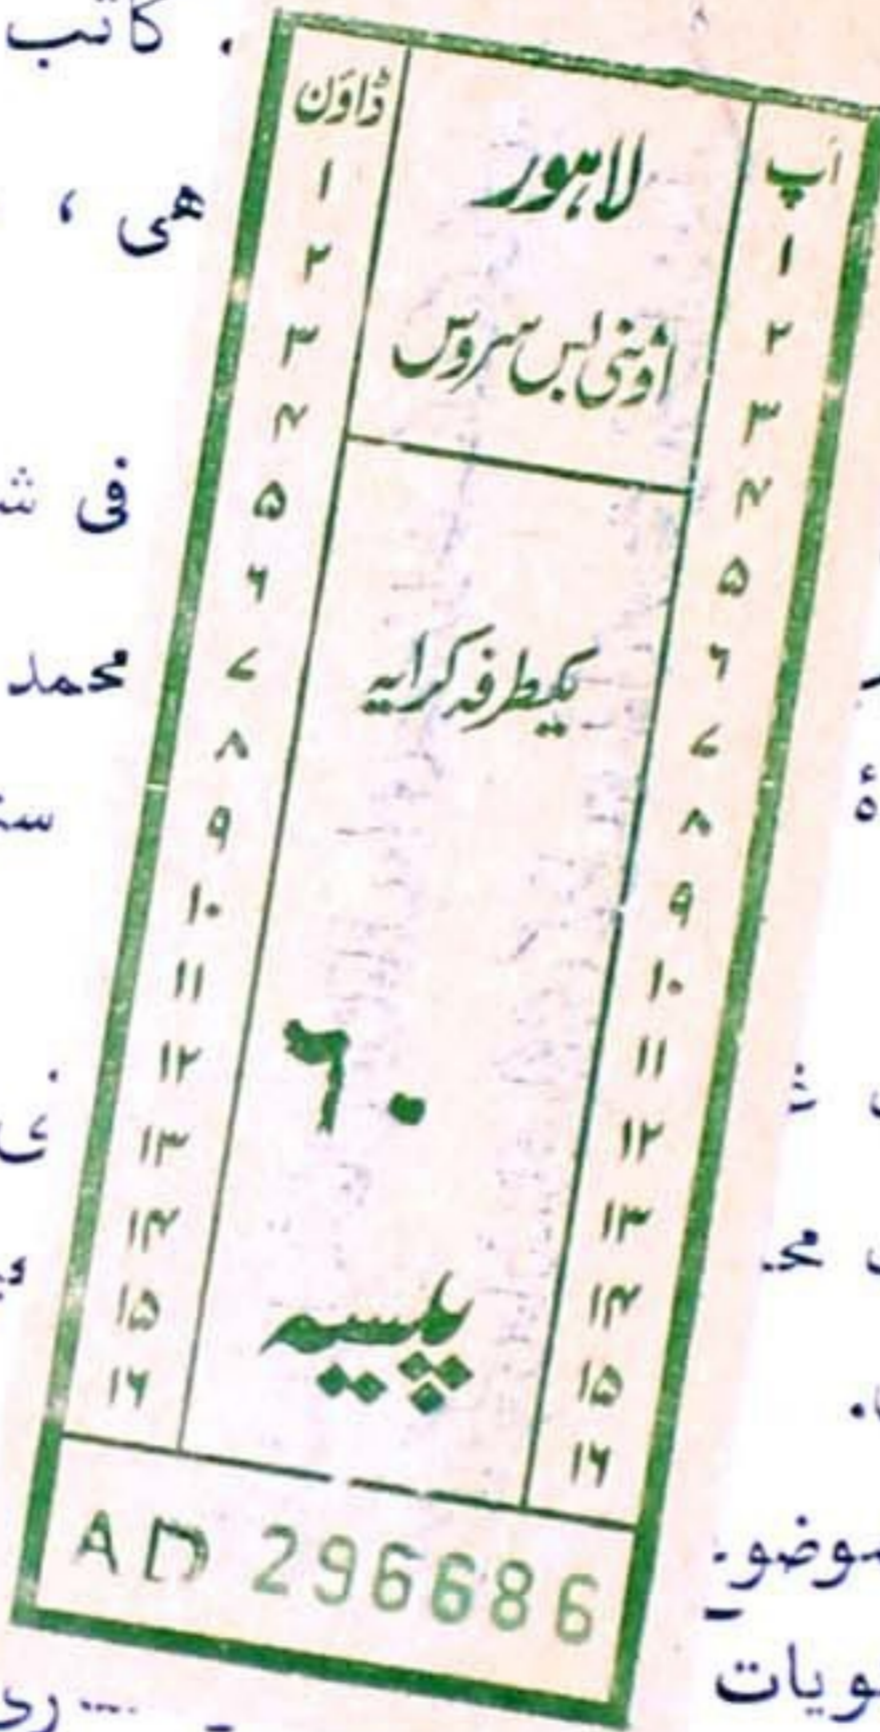 . کاتب
ھی ،
فی
محمد
موضو
ویات
اَپ
۱
۲
۳
۴
۵
۶
۷
۸
۹
۱۰
۱۱
۱۲
۱۳
۱۴
۱۵
۱۶
لاہور
اومنی بس سروس
یکطرفہ کرایہ
۶۰
پیسہ
ڈاؤن
۱
۲
۳
۴
۵
۶
۷
۸
۹
۱۰
۱۱
۱۲
۱۳
۱۴
۱۵
۱۶
AD 296686